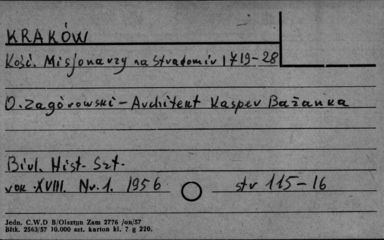 KRAKÓW
Kość. Misjonarzy na Stradomiu 1719-28
O. Zagórowski - Architekt Kasper Bażanka
Biul. Hist. Szt.
rok XVIII. Nr. 1. 1956 str 115-16
Jedn. C.W.D B/Olsztyn Zam 2776 /on/57
Bltk. 2563/57 10.000 szt. karton kl. 7 g 220.